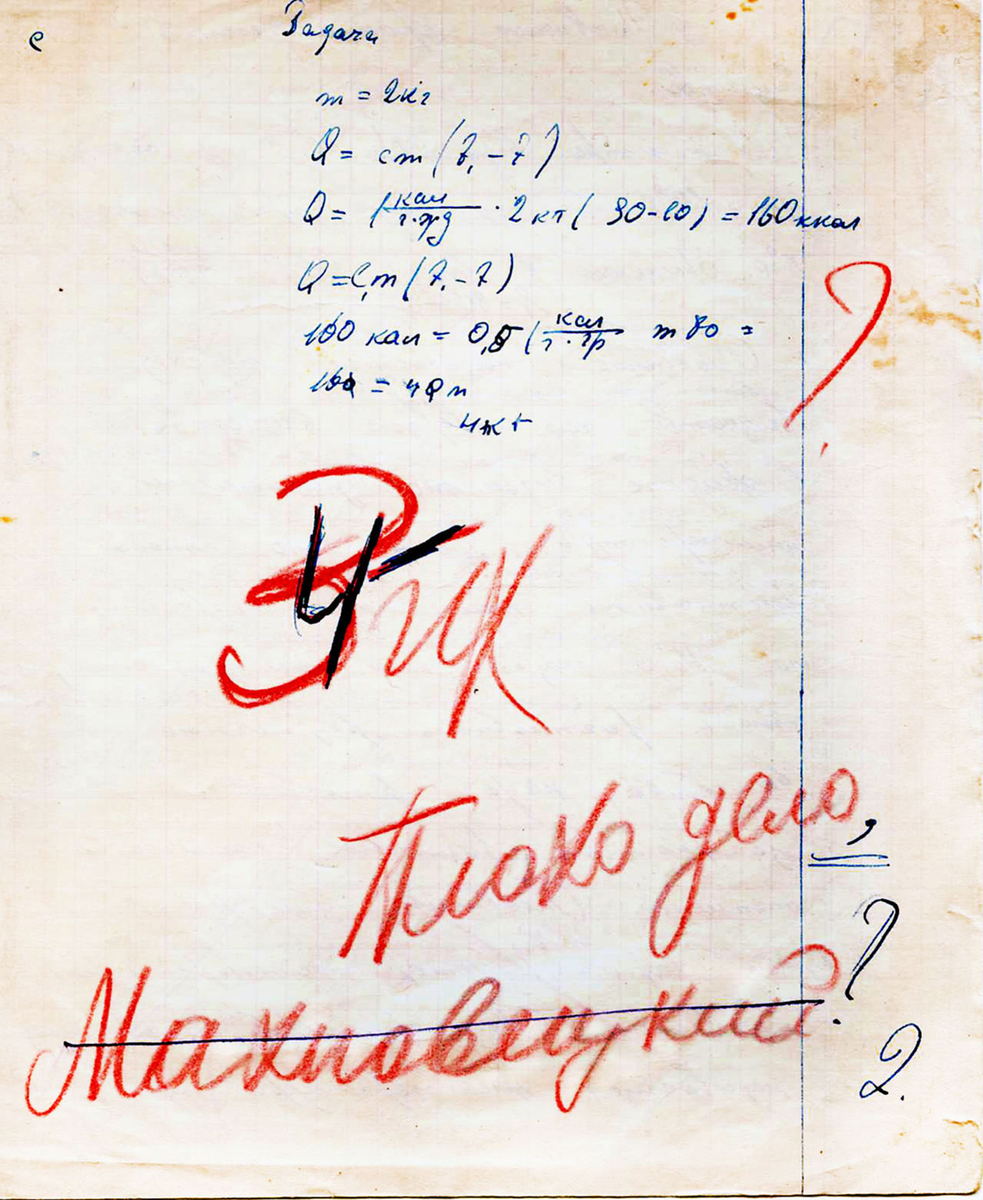 е
Задача
m = 2кг
Q = cm(t₁ - t)
Q = 1 кал/г·гр · 2 кг ( 90-10) = 160 ккал
Q = C₁m(t₁ - t)
160 кал = 0,5 ( кал/г·гр m 80 =
160 = 40 m
4 кг
?
3 4-
Плохо дело,
Махновецкий.
?
2.